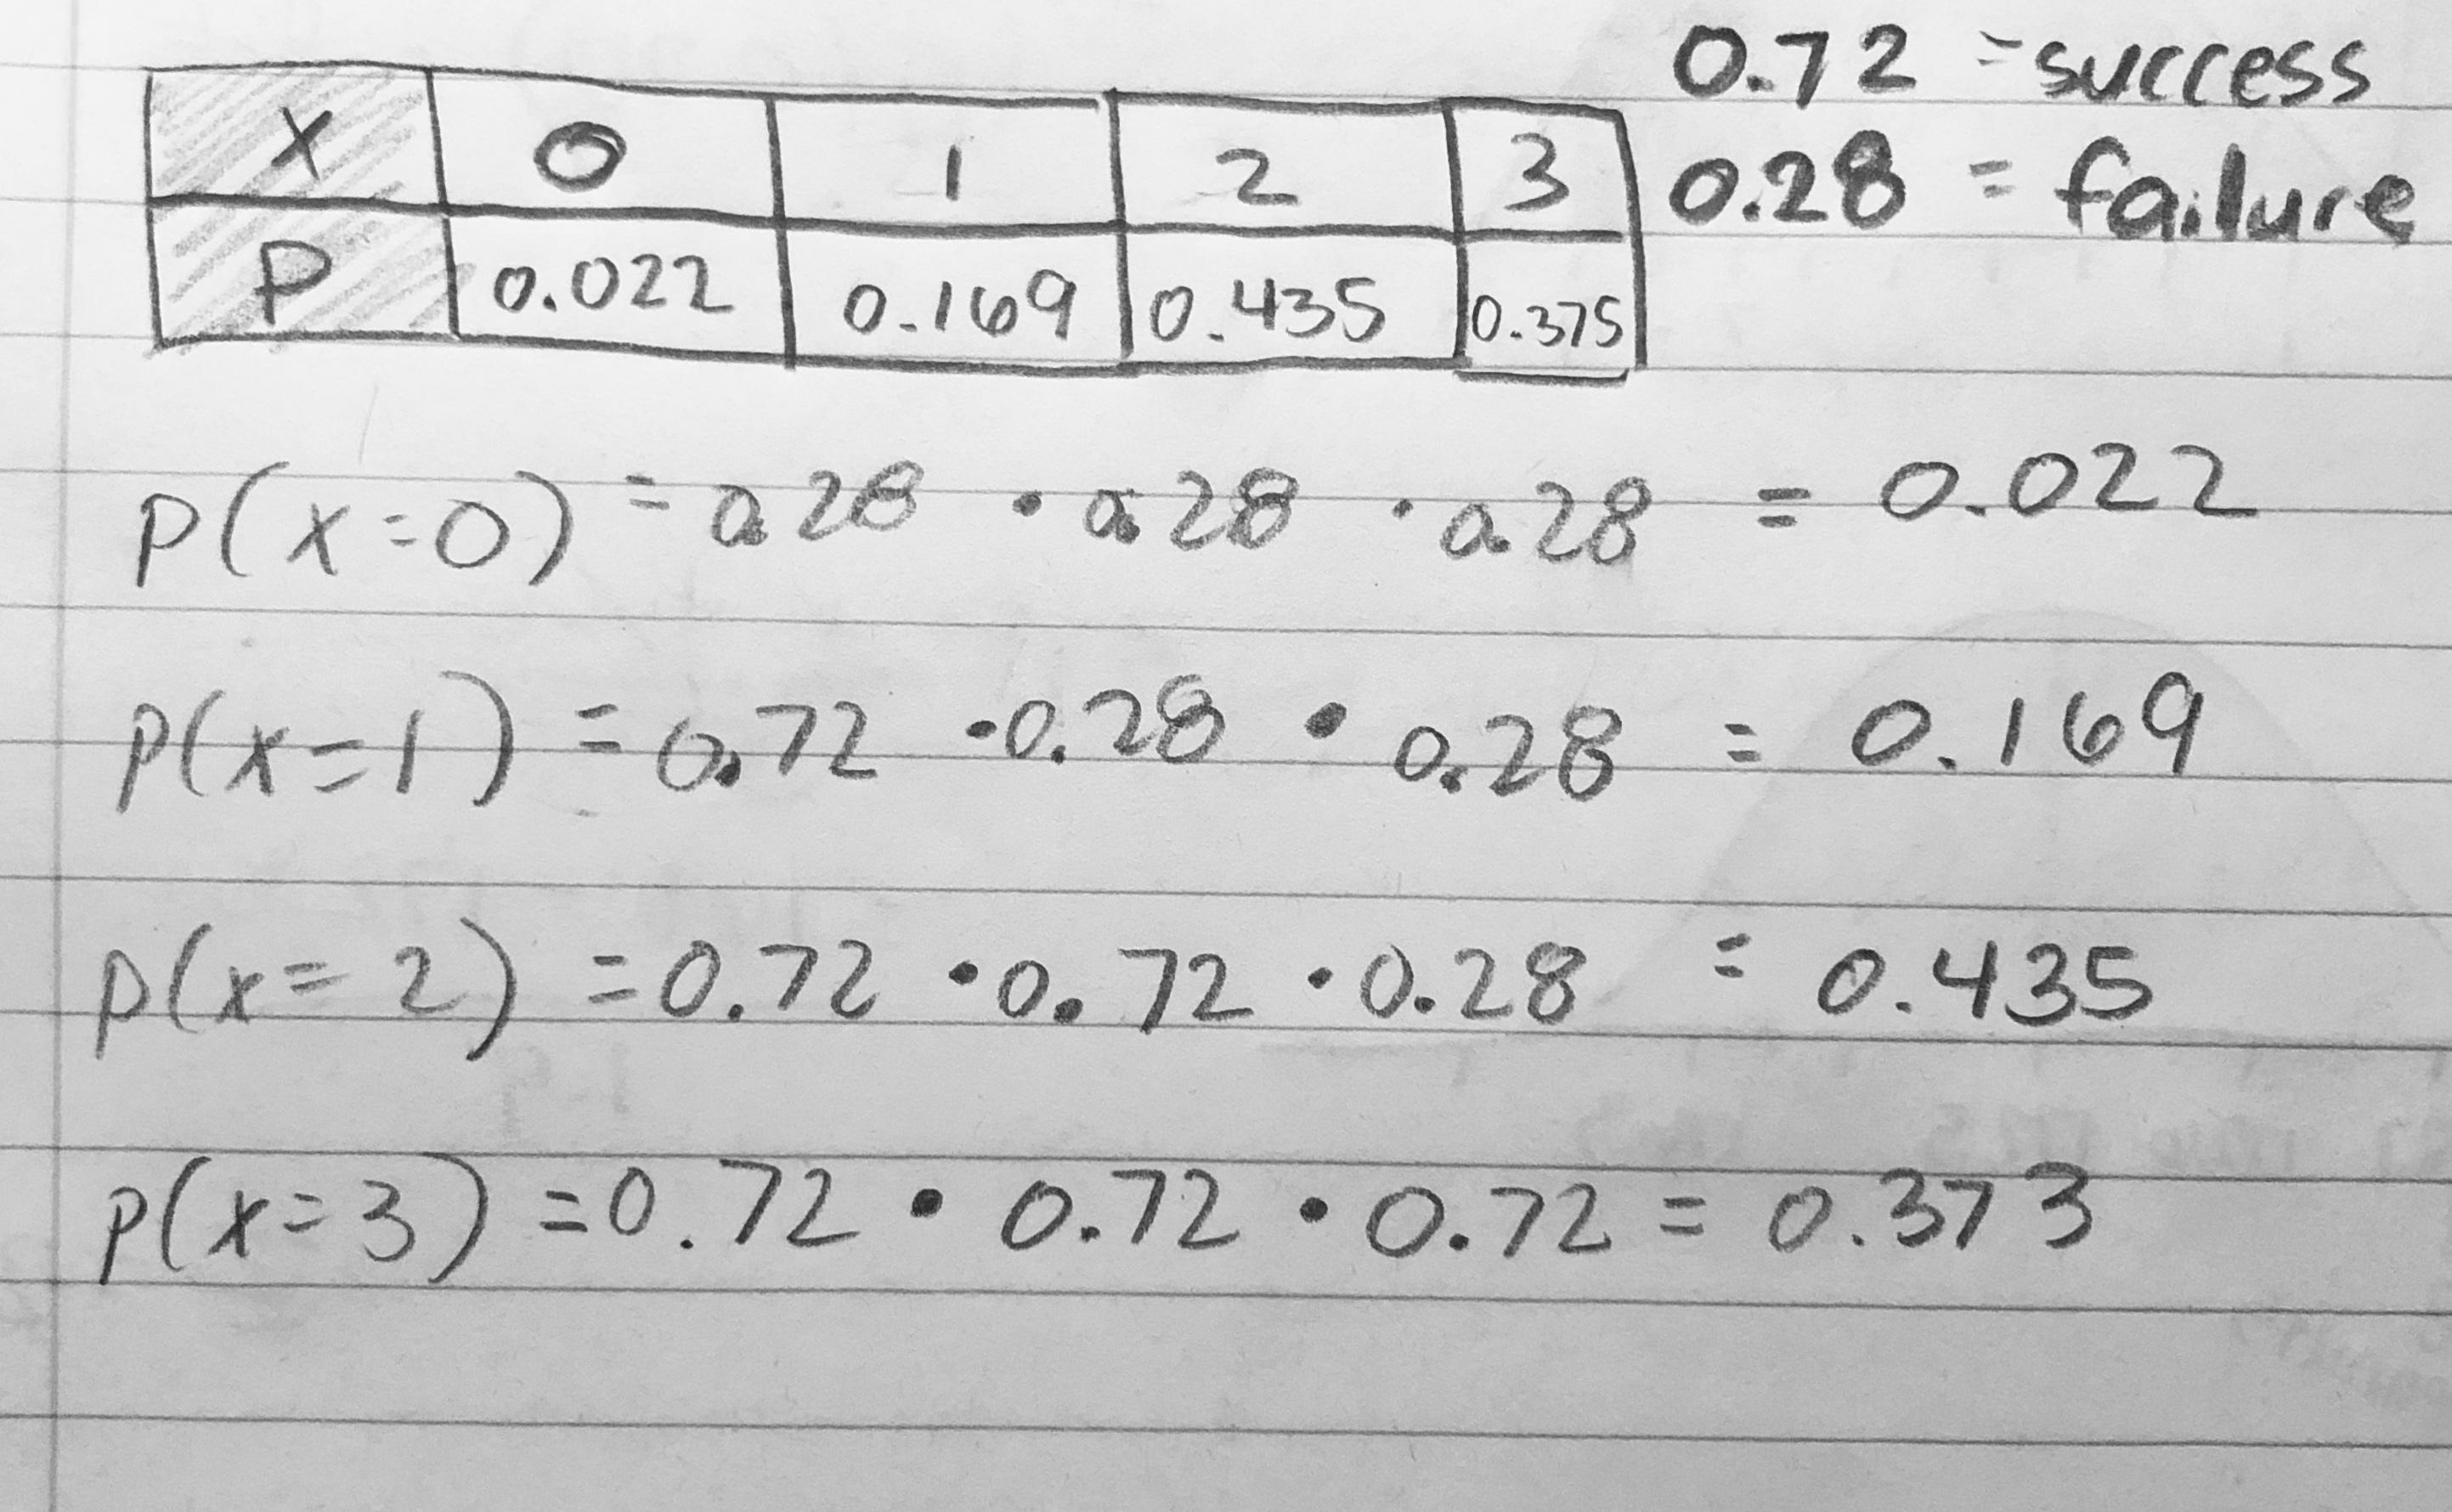 0.72 = success
0.28 = failure
X 0 1 2 3
P 0.022 0.169 0.435 0.375
P(x=0) = 0.28 · 0.28 · 0.28 = 0.022
P(x=1) = 0.72 · 0.28 · 0.28 = 0.169
P(x=2) = 0.72 · 0.72 · 0.28 = 0.435
P(x=3) = 0.72 · 0.72 · 0.72 = 0.373